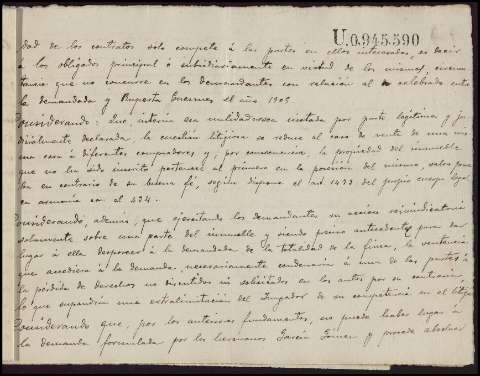 U.0.945.590
dad de los contratos solo compete á las partes en ellos interesadas, es decir
á los obligados principal ó subsidiariamente en virtud de los mismos, circuns
tancia que no concurre en los demandantes con relación al celebrado entre
la demandada y Ruperta el año 1909
Considerando: Que, interin esa nulidad no sea instada por parte legítima y ju
dicialmente declarada, la cuestión litigiosa se reduce al caso de venta de una mis
ma cosa á diferentes compradores y, por consecuencia, la propiedad del inmueble
que no ha sido inscrito pertenece al primero en la posesión del mismo, salvo prue
ba en contrario de su buena fé, según dispone el art 1473 del propio cuerpo legal
en armonía con el 434.
Considerando, además, que ejercitando los demandantes su acción reivindicatoria
solamente sobre una parte del inmueble y siendo preciso antecedente para dar
lugar á ella desposeer á la demandada de la totalidad de la finca, la sentencia
que accediera á la demanda, necesariamente condenaría á una de las partes á
la pérdida de derechos no discutidos ni solicitados en los autos por su contraria
lo que supondría una extralimitación del Juzgador de su competencia en el litigio
Considerando que, por los anteriores fundamentos, no puede haber lugar á
la demanda formulada por los hermanos García y procede absolver